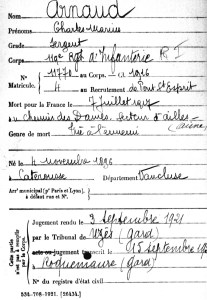 Nom Arnaud
Prénoms Charles Marius
Grade Sergent
Corps 119e Régt d'Infanterie R I
N° 11771 au Corps. — Cl. 1916
Matricule. 4 au Recrutement de Pont St Esprit
Mort pour la France le 7 juillet 1917
à Chemin des Dames, secteur d'ailles - (Aisne)
Genre de mort Tué à l'ennemi
Né le 4 novembre 1896
à Caderousse Département Vaucluse
Arr' municipal (p' Paris et Lyon),
à défaut rue et N°.
Cette partie
n'est pas à remplir
par le Corps.
Jugement rendu le 3 septembre 1921
par le Tribunal de Uzès (Gard)
acte ou jugement transcrit le 15 septembre
à Roquemaure (Gard)
N° du registre d'état civil
534-708-1921. [26434.]